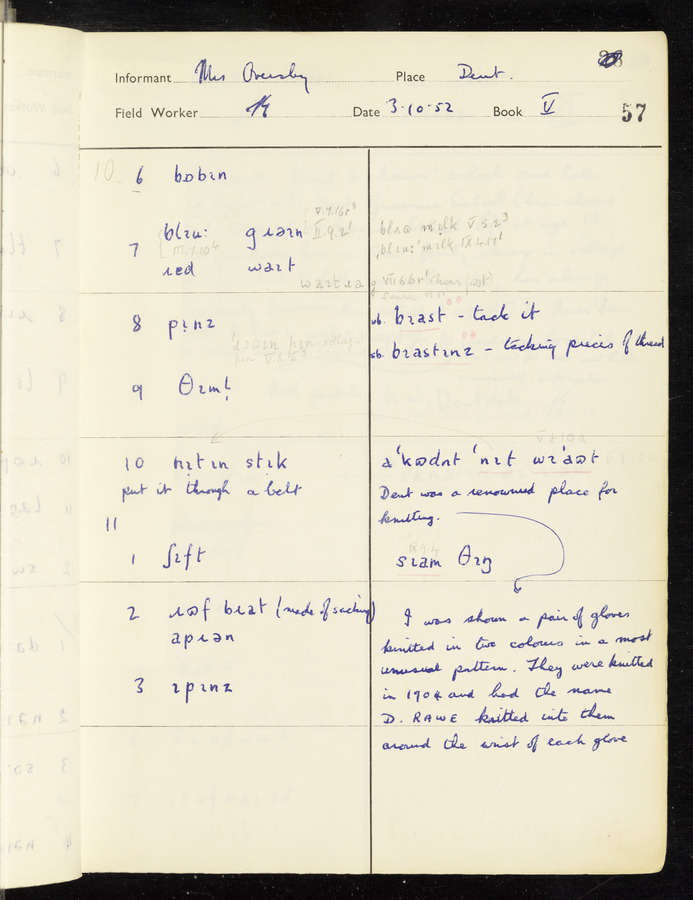 Informant Mrs Oversby Place Dent.
Field Worker Date 3·10·52 Book V 57
10 6 bɒbɪn
V.7.16r³
blɪu: gɹɪən II.9.2¹ blɪə mɪlk V.5.2³
7 III.7.10⁴ blɪu: mɪlk
ɹɛd waɪt
8 pɪnz vb. bɪast - tack it
sb. bɪastɪnz - tacking pieces of thread
V.6.5³
9 θɪml̩
10 nɪtɪn stɪk əˈkʊdnt ˈnɪt wɪˈaʊt
put it through a belt Dent was a renowned place for
knitting.
11
1 ʃɪft sɪam θɪŋ
2 ɹʊf bɹat (made of sacking) I was shown a pair of gloves
apɹən knitted in two colours in a most
unusual pattern. They were knitted
3 ɪpɪnz in 1904 and had the name
D. RAWE knitted into them
around the wrist of each glove